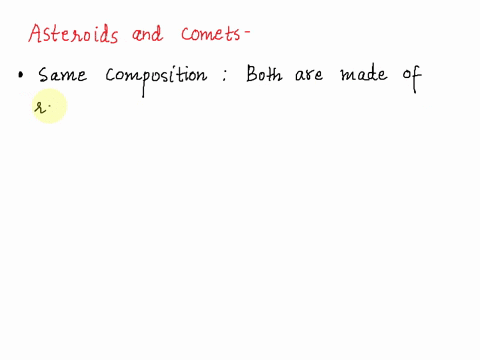 Asteroids and comets-
• Same composition : Both are made of
r